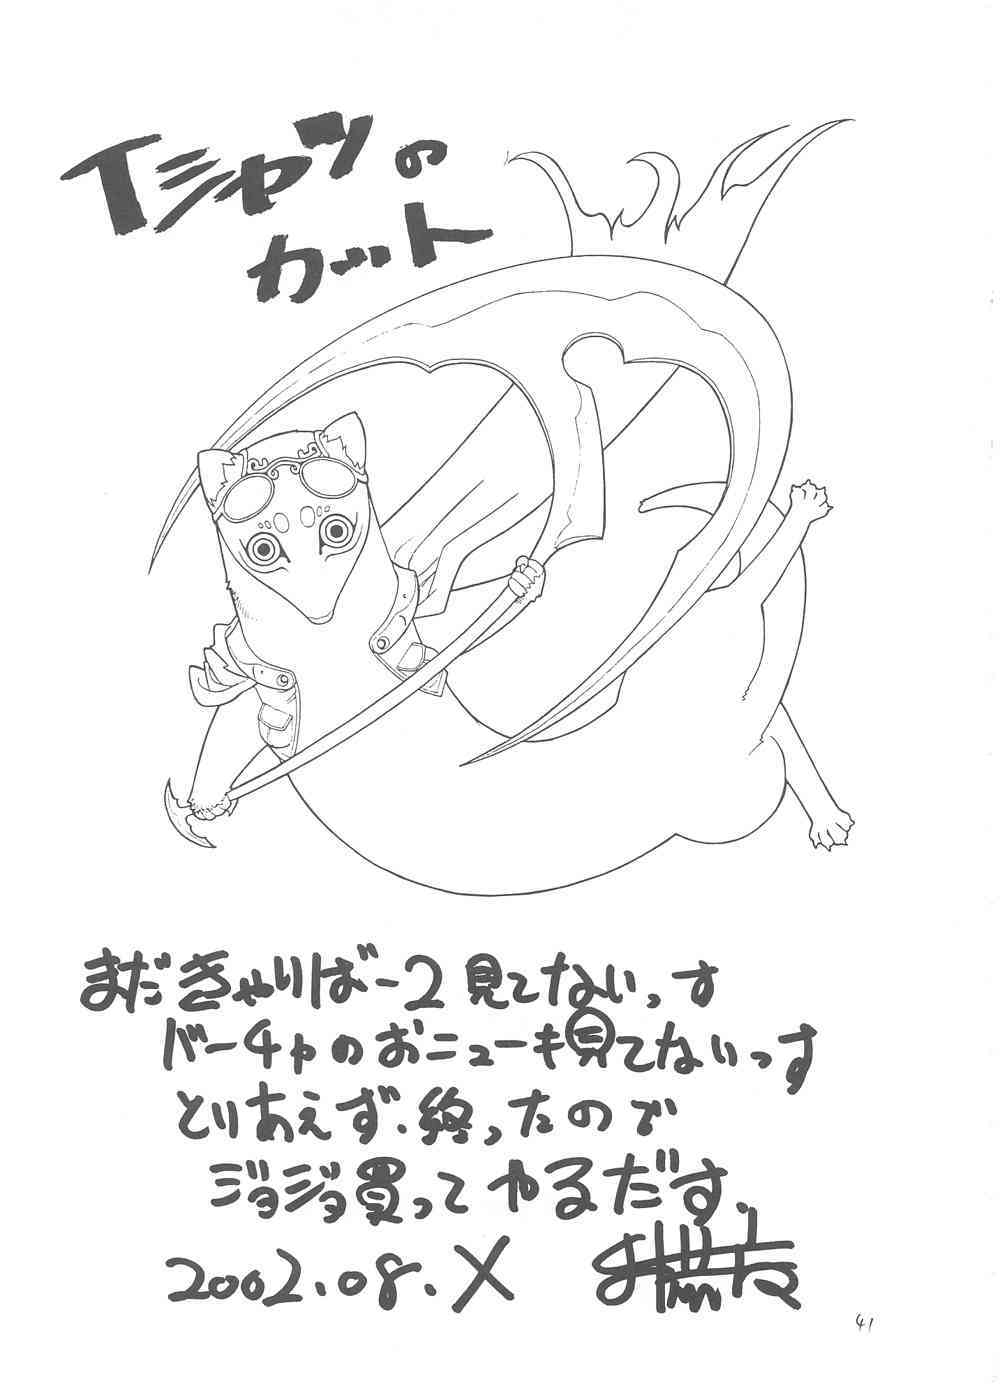 Tシャツの
カット
まだきゃりばー2見てないっす
バーチャのおニューも見てないっす
とりあえず、終ったので
ジョジョ買ってやるだす。
2002.08.X
41